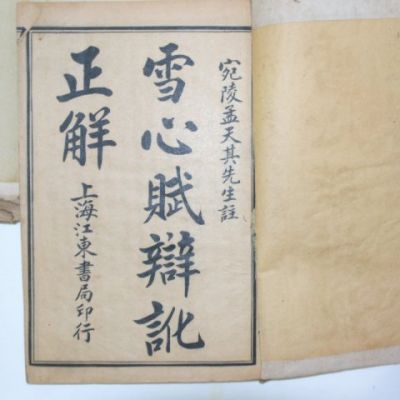 宛陵孟天其先生註
雪心賦辯訛
正觧
上海江東書局印行